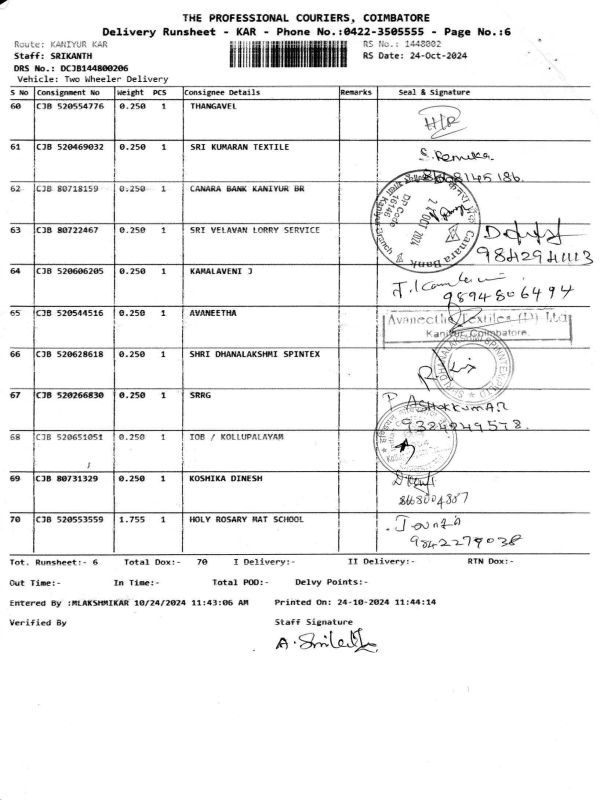 THE PROFESSIONAL COURIERS, COIMBATORE
Delivery Runsheet - KAR - Phone No.:0422-3505555 - Page No.:6
Route: KANIYUR KAR RS No.: 1448002
Staff: SRIKANTH RS Date: 24-Oct-2024
DRS No.: DCJB144800206
Vehicle: Two Wheeler Delivery
S No Consignment No Weight PCS Consignee Details Remarks Seal & Signature
60 CJB 520554776 0.250 1 THANGAVEL
61 CJB 520469032 0.250 1 SRI KUMARAN TEXTILE
S. Renuka
62 CJB 80718159 0.250 1 CANARA BANK KANIYUR BR
DP Code
16146
Canara Bank
63 CJB 80722467 0.250 1 SRI VELAVAN LORRY SERVICE
64 CJB 520606205 0.250 1 KAMALAVENI J
9894806494
65 CJB 520544516 0.250 1 AVANEETHA
Avaneetha Textiles (P) Ltd
Kaniyur, Coimbatore.
66 CJB 520628618 0.250 1 SHRI DHANALAKSHMI SPINTEX
67 CJB 520266830 0.250 1 SRRG
P ASHOKKUMAR
68 CJB 520651051 0.250 1 IOB / KOLLUPALAYAM
69 CJB 80731329 0.250 1 KOSHIKA DINESH
70 CJB 520553559 1.755 1 HOLY ROSARY MAT SCHOOL
9842279038
Tot. Runsheet:- 6 Total Dox:- 70 I Delivery:- II Delivery:- RTN Dox:-
Out Time:- In Time:- Total POD:- Delvy Points:-
Entered By :MLAKSHMIKAR 10/24/2024 11:43:06 AM Printed On: 24-10-2024 11:44:14
Verified By Staff Signature